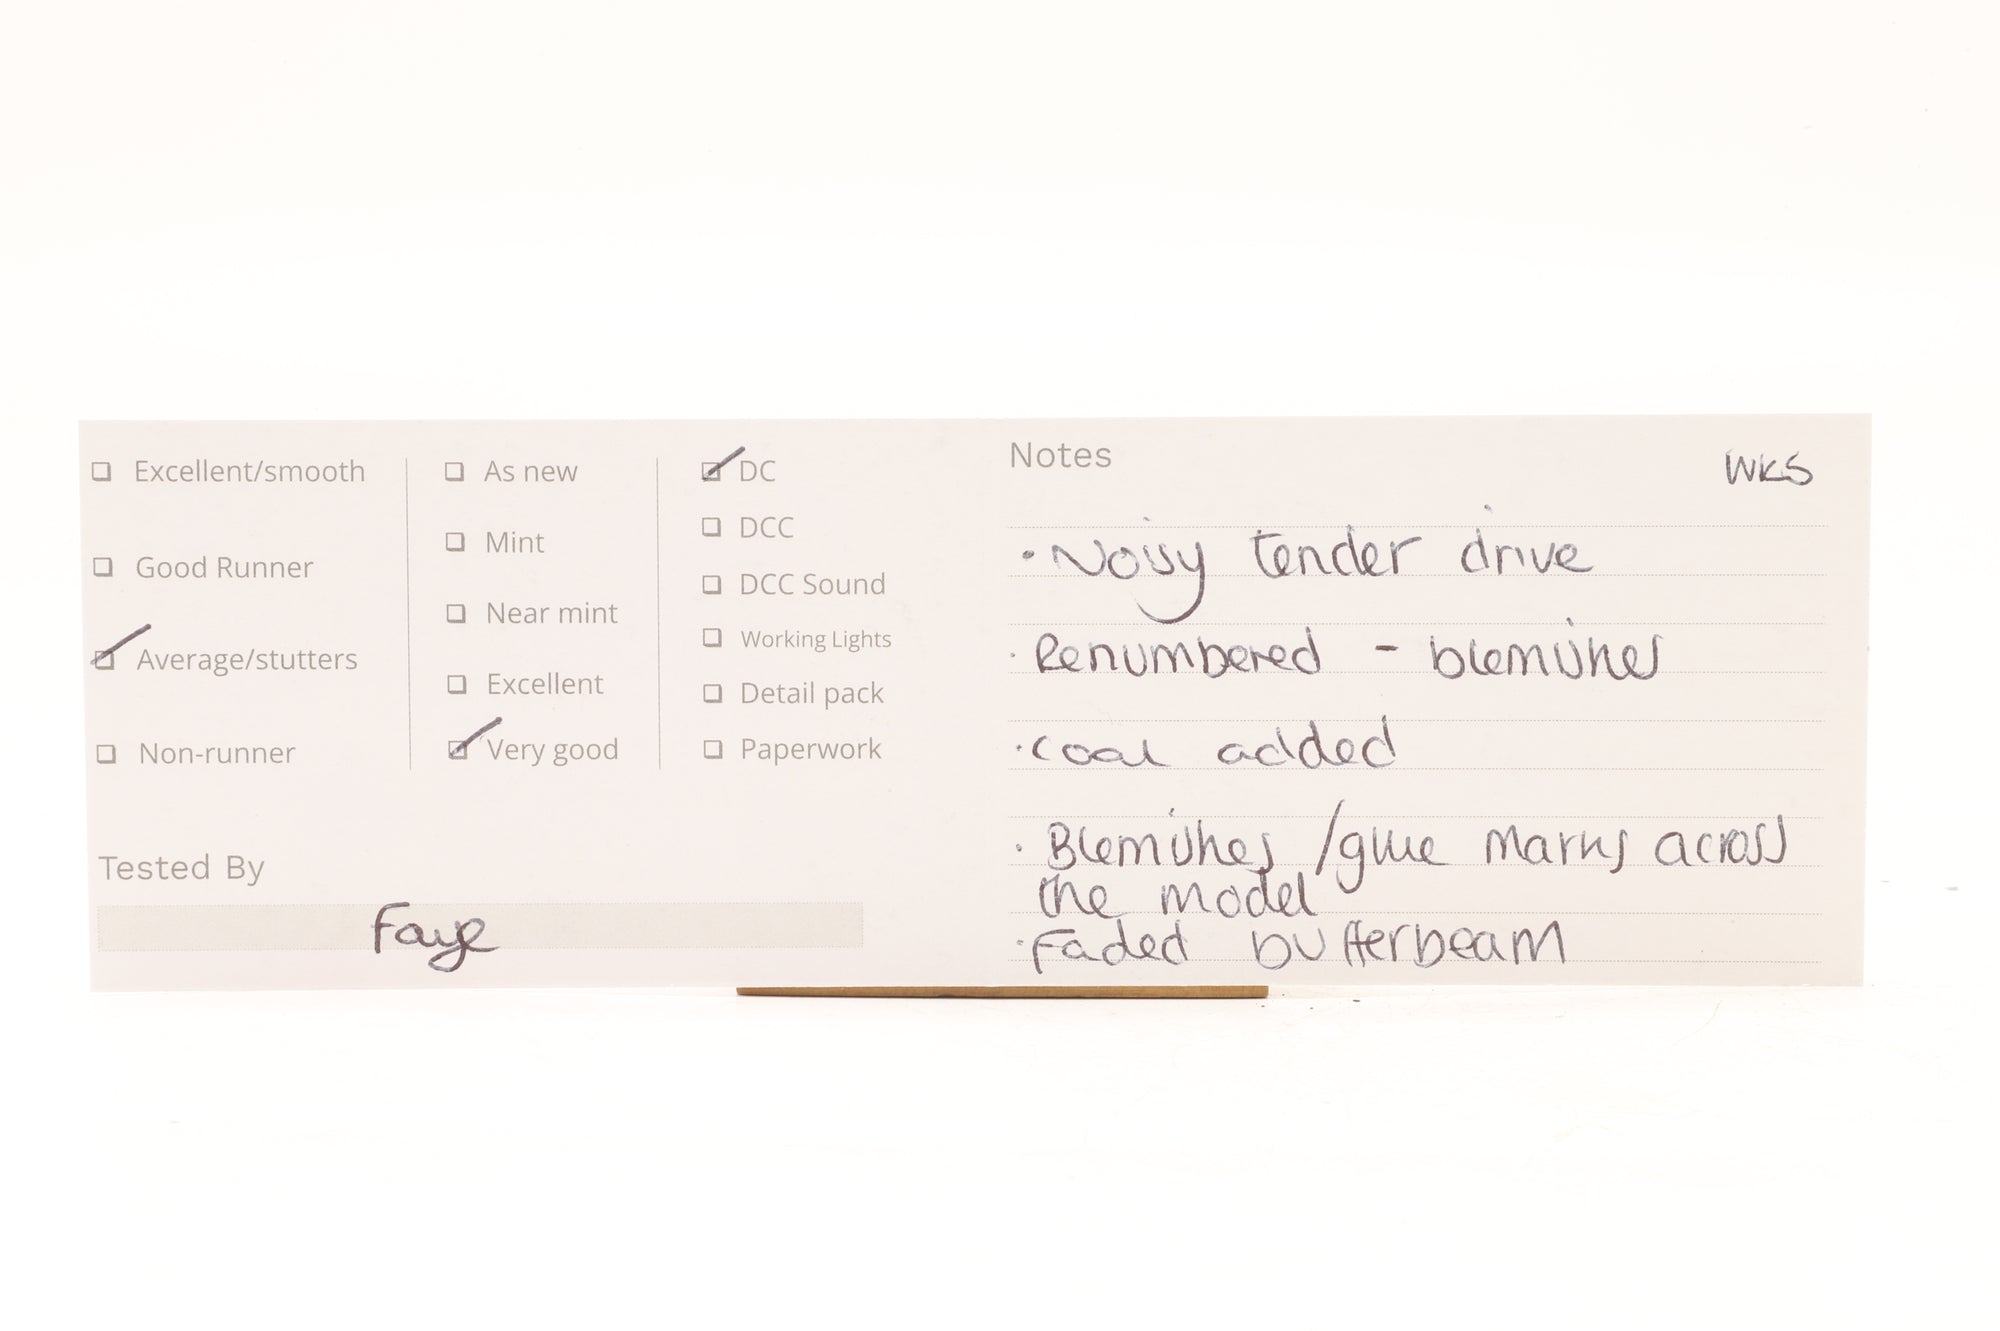 ☐ Excellent/smooth
☐ Good Runner
☑ Average/stutters
☐ Non-runner
☐ As new
☐ Mint
☐ Near mint
☐ Excellent
☑ Very good
☑ DC
☐ DCC
☐ DCC Sound
☐ Working Lights
☐ Detail pack
☐ Paperwork
Tested By
Faye
Notes
WKS
· Noisy tender drive
· Renumbered - blemishes
· coal added
· Blemishes /glue marks across
the model
· Faded bufferbeam